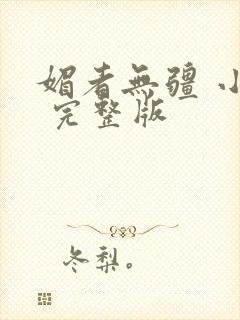 媚者無疆 小
完整版
冬梨。